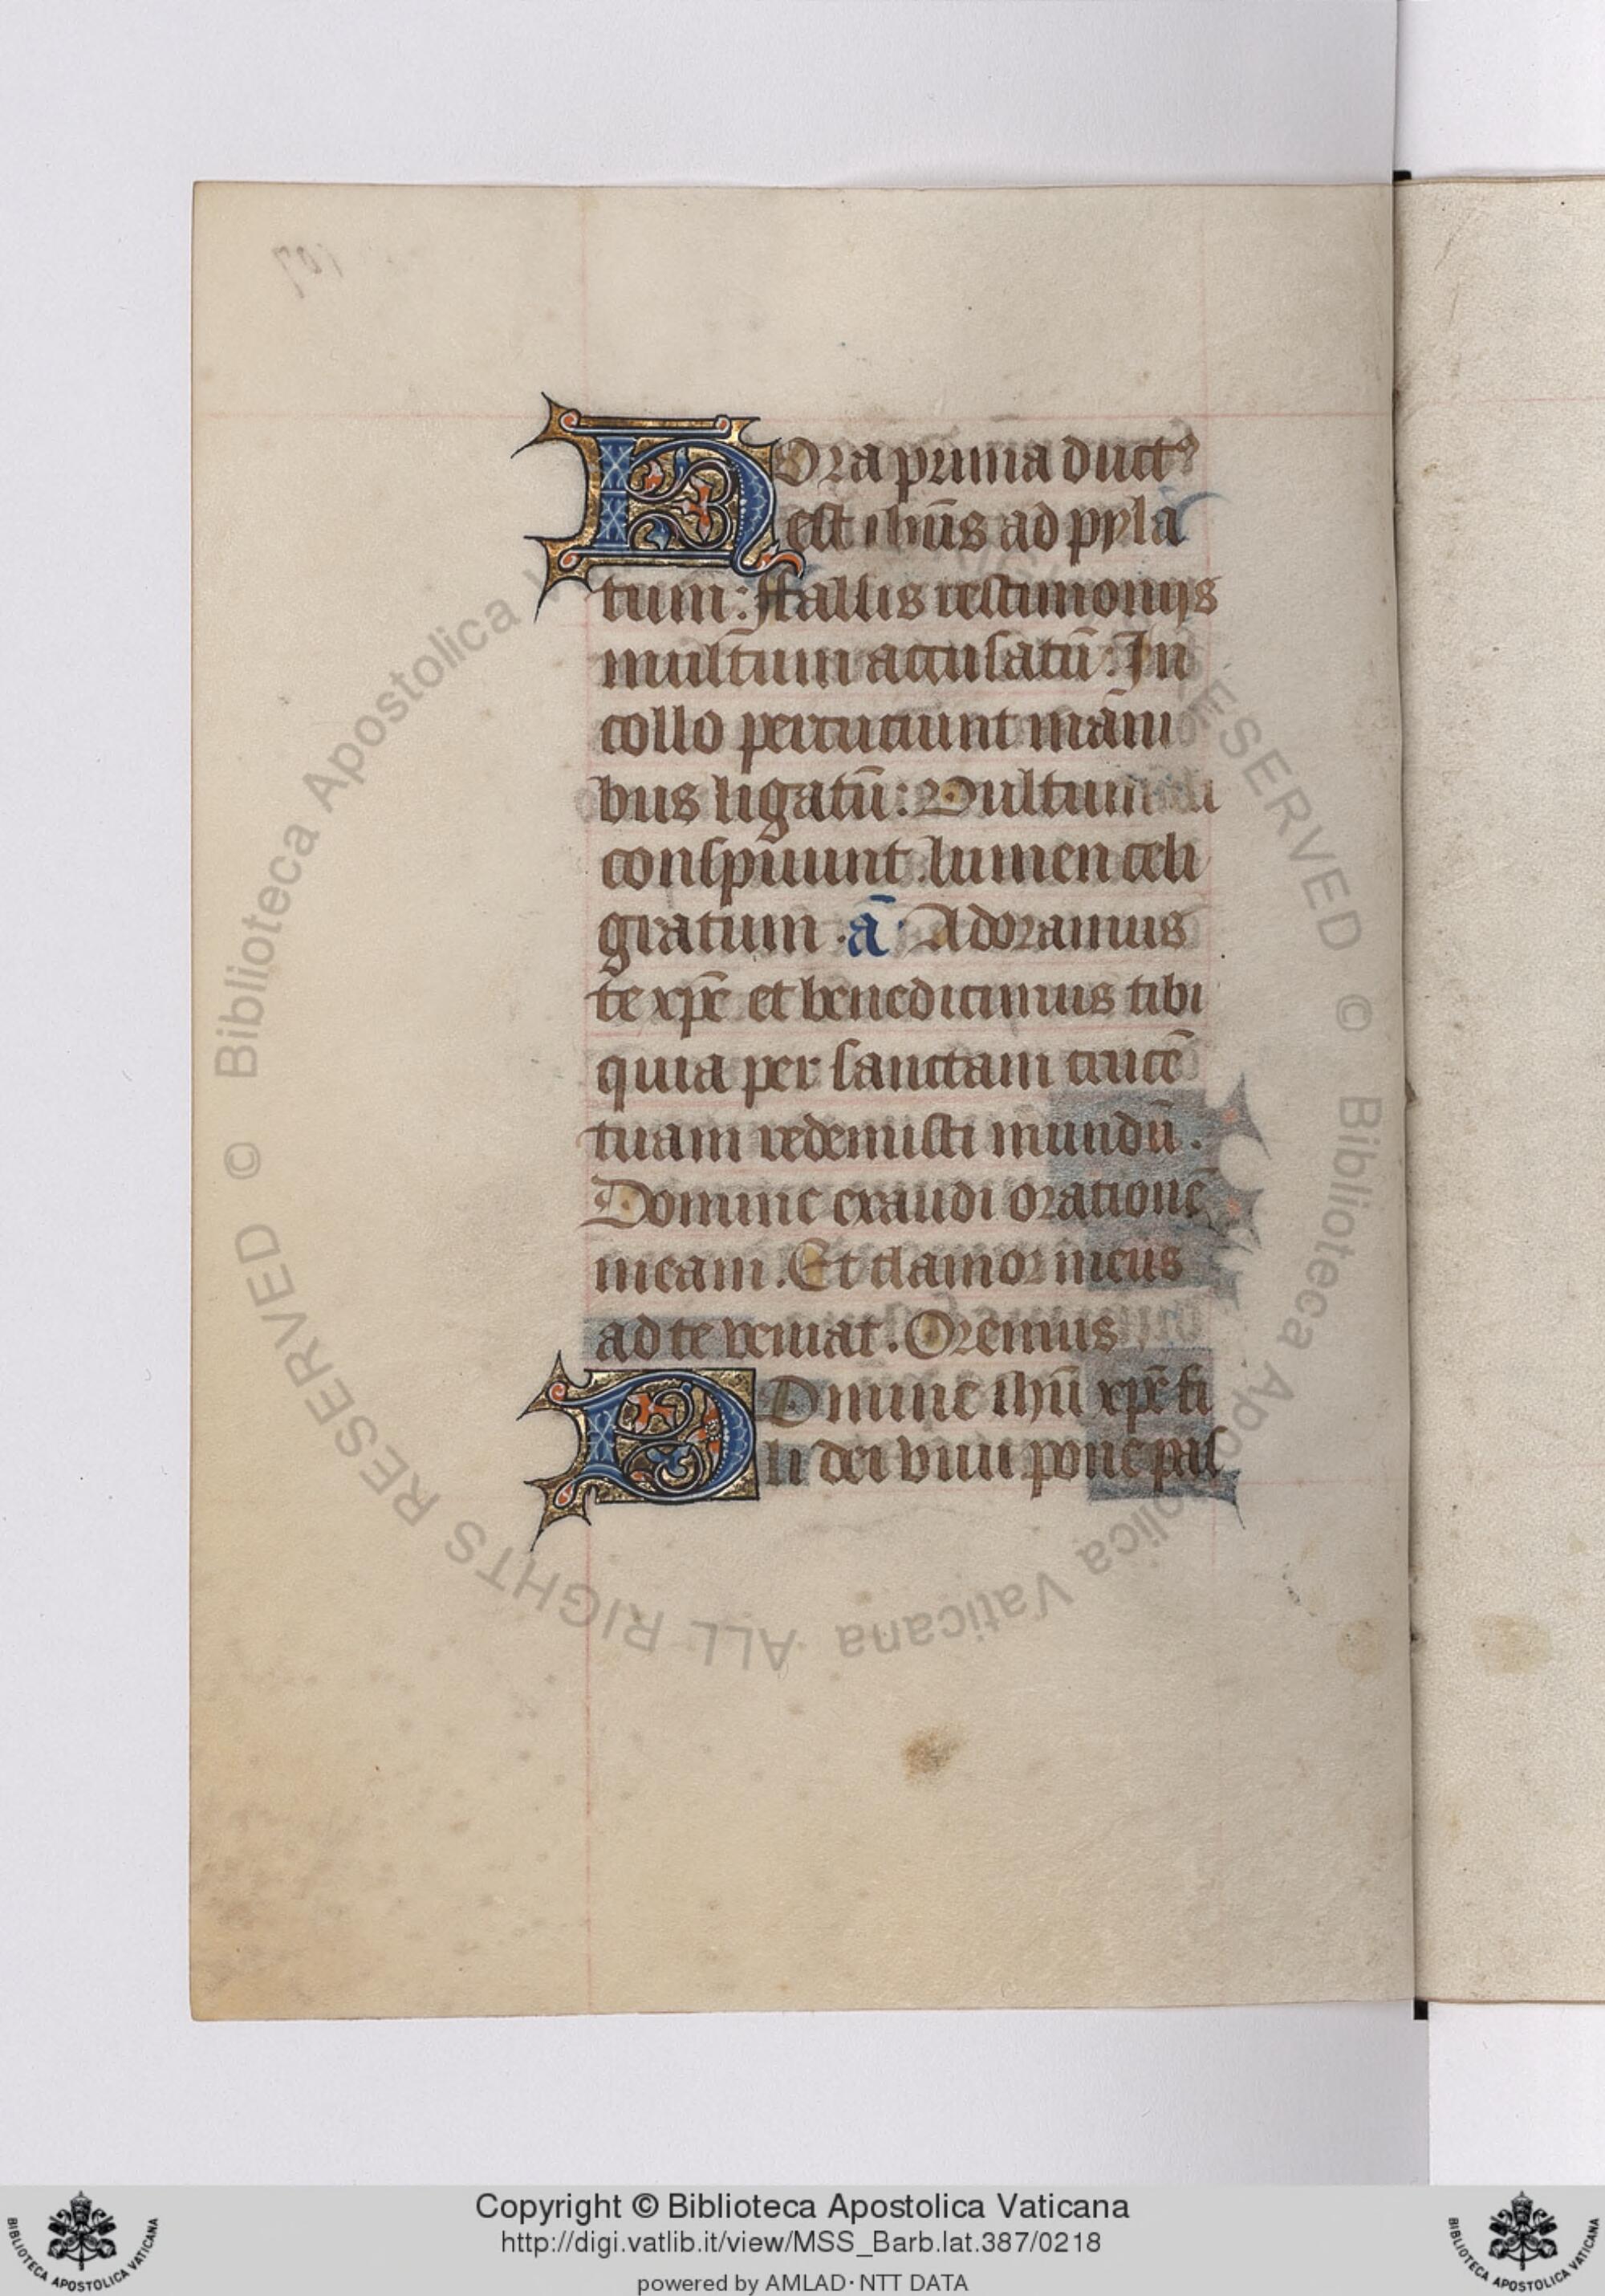 Hora prima duct⁹
est ihūs ad pyla
tum: ffalsis testimonijs
multum accusatū: In
collo percuciunt mani
bus ligatū: Vultum
conspuunt lumen celi
gratum. ā Adoramus
te xp̄e et benedicimus tibi
quia per sanctam crucē
tuam redemisti mundū.
Domine exaudi orationē
meam. Et clamor meus
ad te veniat. Oremus
Domine ihū xp̄e fi
li dei viui pone pas
Copyright © Biblioteca Apostolica Vaticana
http://digi.vatlib.it/view/MSS_Barb.lat.387/0218
powered by AMLAD·NTT DATA
BIBLIOTECA APOSTOLICA VATICANA
BIBLIOTECA APOSTOLICA VATICANA
© Biblioteca Apostolica Vaticana ALL RIGHTS RESERVED